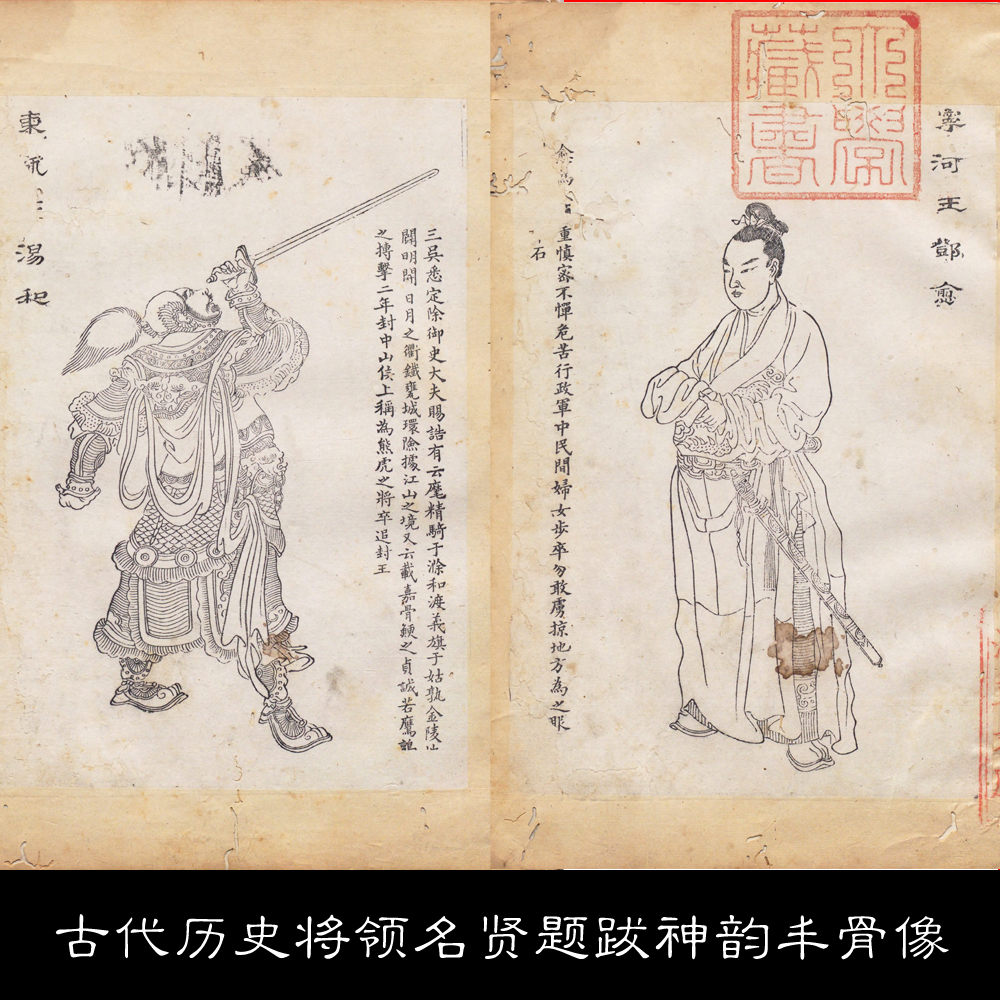 寧河王鄧愈
學
藏書
為
重慎密不憚危苦行政軍中民間婦女步卒勿敢虜掠地方為之眠
石
東甌王湯和
三吳悉定除御史大夫賜誥有云麾精騎于滁和渡義旗于姑孰金陵
闢明開日月之衢鐵甕城環險據江山之境又云載嘉骨鯁之貞誠若鷹
之搏擊二年封中山侯上稱為熊虎之將卒追封王
古代历史将领名贤题跋神韵丰骨像